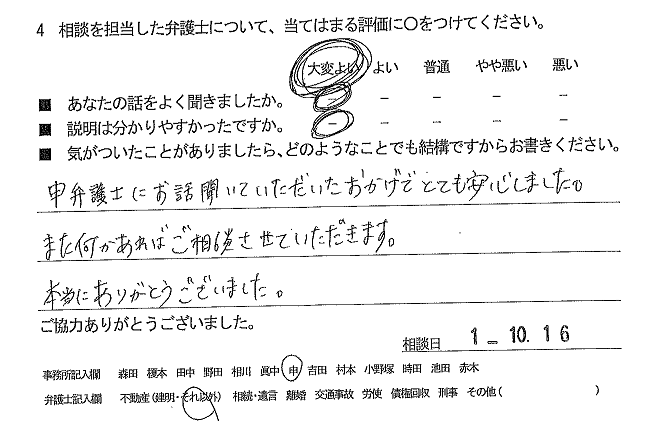 4 相談を担当した弁護士について、当てはまる評価に〇をつけてください。
大変よい よい 普通 やや悪い 悪い
■ あなたの話をよく聞きましたか。 － － － － －
■ 説明は分かりやすかったですか。 － － － － －
■ 気がついたことがありましたら、どのようなことでも結構ですからお書きください。
申弁護士にお話聞いていただいたおかげでとても安心しました。
また何かあればご相談させていただきます。
本当にありがとうございました。
ご協力ありがとうございました。
相談日 1－10.16
事務所記入欄 森田 榎本 田中 野田 相川 眞中 申 吉田 村本 小野塚 時田 池田 赤木
弁護士記入欄 不動産(建明・それ以外) 相続・遺言 離婚 交通事故 労使 債権回収 刑事 その他( )